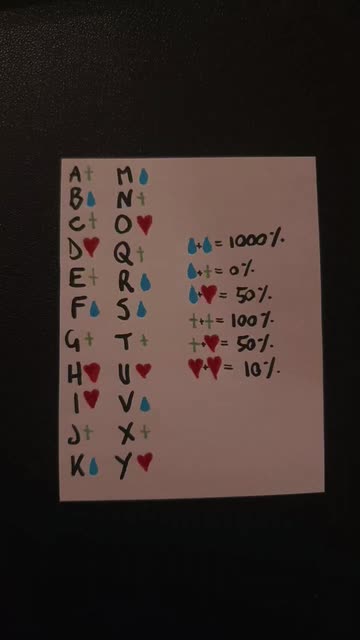 A† M💧
B💧 N†
C† O❤
D❤ Q†
E† R💧
F💧 S💧
G† T†
H❤ U❤
I❤ V💧
J† X†
K💧 Y❤
💧+💧= 1000%
💧+†= 0%
💧+❤= 50%
†+†= 100%
†+❤= 50%
❤+❤= 10%